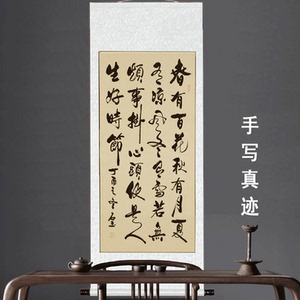 春有百花秋有月夏
有凉风冬有雪若無
煩事掛心頭便是人
生好時節
丁酉之
手写真迹